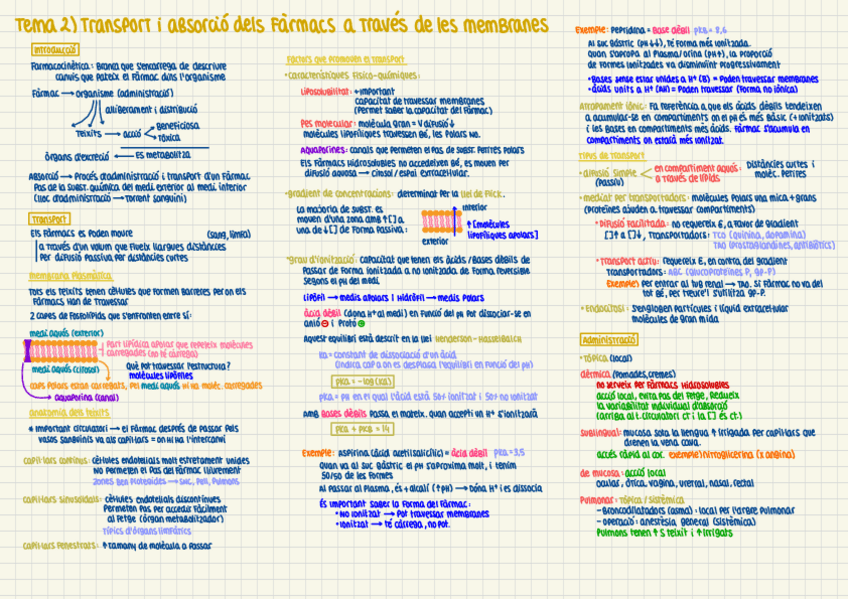 Tema 2) Transport i absorció dels Fàrmacs a través de les membranes
Introducció
Farmacocinètica: Branca que s'encarrega de descriure
canvis que pateix el Fàrmac dins l'organisme
Fàrmac → organisme (administració)
alliberament i distribució
Teixits → acció
Beneficiosa
tòxica
òrgans d'excreció ← Es metabolitza
Absorció → Procés d'administració i transport d'un Fàrmac
Pas de la subst. química del medi exterior al medi interior
(lloc d'administració → torrent sanguini)
Transport
Els Fàrmacs es poden moure
(sang, limfa)
a través d'un volum que flueix llargues distàncies
Per difusió passiva per distàncies curtes
Membrana plasmàtica
Tots els teixits tenen cèl·lules que formen barreres per on els
Fàrmacs han de travessar
2 capes de fosfolípids que s'enfronten entre si:
medi aquós (exterior)
Part lipídica apolar que repeteix molècules
carregades (on té càrrega)
medi aquós (citosol)
Què pot travessar l'estructura?
molècules lipòfiles
caps polars estan carregats, pel medi aquós hi ha moléc. carregades
aquaporina (canal)
anatomia dels teixits
* important circulatori → el Fàrmac després de passar pels
vasos sanguinis va als capil·lars = on hi ha l'intercanvi
capil·lars continus: cèl·lules endotelials molt estretament unides
No permeten el pas del Fàrmac lliurement
zones ben protegides → SNC, pell, pulmons
capil·lars sinusoidals: cèl·lules endotelials discontínues
Permeten pas per accedir fàcilment
al fetge (òrgan metabolitzador)
Típics d'òrgans limfàtics
capil·lars fenestrats: ↑ tamany de molècula a passar
Factors que promouen el transport
•característiques físico-químiques:
Liposolubilitat: + important
capacitat de travessar membranes
(Permet saber la capacitat del fàrmac)
Pes molecular: molècula gran = V difusió ↓
molècules lipofíliques travessen bé, les polars no.
Aquaporines: canals que permeten el pas de subst. petites polars
Els Fàrmacs hidrosolubles no accedeixen bé, es mouen per
difusió aquosa → citosol / espai extracel·lular.
•gradient de concentracions: determinat per la llei de Fick.
La majoria de subst. es
mouen d'una zona amb ↑[] a
una de ↓[] de forma passiva:
interior
exterior
↑ [molècules
lipofíliques apolars]
•grau d'ionització: capacitat que tenen els àcids/bases dèbils de
passar de forma ionitzada a no ionitzada de forma reversible
segons el pH del medi.
Lipòfil → medis apolars | Hidròfil → medis polars
àcid dèbil (dona H⁺ al medi) en funció del pH pot dissociar-se en
anió ⊖ i protó ⊕
Aquest equilibri està descrit en la llei Henderson-Hasselbalch
Ka = constant de dissociació d'un àcid
(indica cap a on es desplaça l'equilibri en funció del pH)
pKa = -log(Ka)
pKa = pH en el qual l'àcid està 50% ionitzat i 50% no ionitzat
amb bases dèbils passa el mateix, quan accepti un H⁺ s'ionitzarà
pKa + pKb = 14
Exemple: Aspirina (àcid acetilsalicílic) = àcid dèbil pKa = 3,5
Quan va al suc gàstric el pH s'aproxima molt, i tenim
50/50 de les formes
Al passar al plasma, és + alcalí (↑pH) → Dóna H⁺ i es dissocia
És important saber la forma del fàrmac:
• No ionitzat → Pot travessar membranes
• Ionitzat → té càrrega, no pot.
Exemple: Pepridina = Base dèbil pKa = 8,6
Al suc gàstric (pH↓↓), té forma més ionitzada.
quan s'apropa al plasma/orina (pH↑), la proporció
de formes ionitzades va disminuint progressivament
•Bases sense estar unides a H⁺ (B) = Poden travessar membranes
•Àcids units a H⁺ (AH) = Poden travessar (forma no iònica)
Atrapament iònic: Fa referència a que els àcids dèbils tendeixen
a acumular-se en compartiments on el pH és més bàsic (+ionitzats)
i les bases en compartiments més àcids. Fàrmac s'acumula en
compartiments on estarà més ionitzat.
Tipus de transport
•difusió simple
(Passiu)
en compartiment aquós:
a través de lípids
Distàncies curtes i
moléc. petites
•mediat per transportadors: molècules polars una mica + grans
(Proteïnes ajuden a travessar compartiments)
•Difusió facilitada: no requereix E, a favor de gradient
[]↑ a []↓, Transportadors: TCO (quinina, dopamina)
TAO (prostaglandines, antibiòtics)
•Transport actiu: requereix E, en contra del gradient
Transportadors: ABC (glucoproteïnes P, gp-P)
Exemple) per entrar al tub renal → TAO. Si fàrmac no va del
tot bé, per treure'l s'utilitza gp-P.
•Endocitosi: S'engloben partícules i líquid extracel·lular
molècules de gran mida
Administració
•Tòpica (local)
dèrmica (Pomades, cremes)
no serveix per Fàrmacs hidrosolubles
acció local, evita pas del fetge, redueix
la variabilitat individual d'absorció
(arriba al t. circulatori ct i la [] és ct.)
sublingual: mucosa sota la llengua ↑ irrigada per capil·lars que
drenen la vena cava.
accés ràpid al cor. exemple) nitroglicerina (x angina)
de mucosa: acció local
ocular, òtica, vagina, uretral, nasal, rectal
Pulmonar: tòpica / sistèmica
- Broncodilatadors (asma): local per l'arbre pulmonar
- operació: anestèsia general (sistèmica)
Pulmons tenen ↑ S teixit i ↑ irrigats